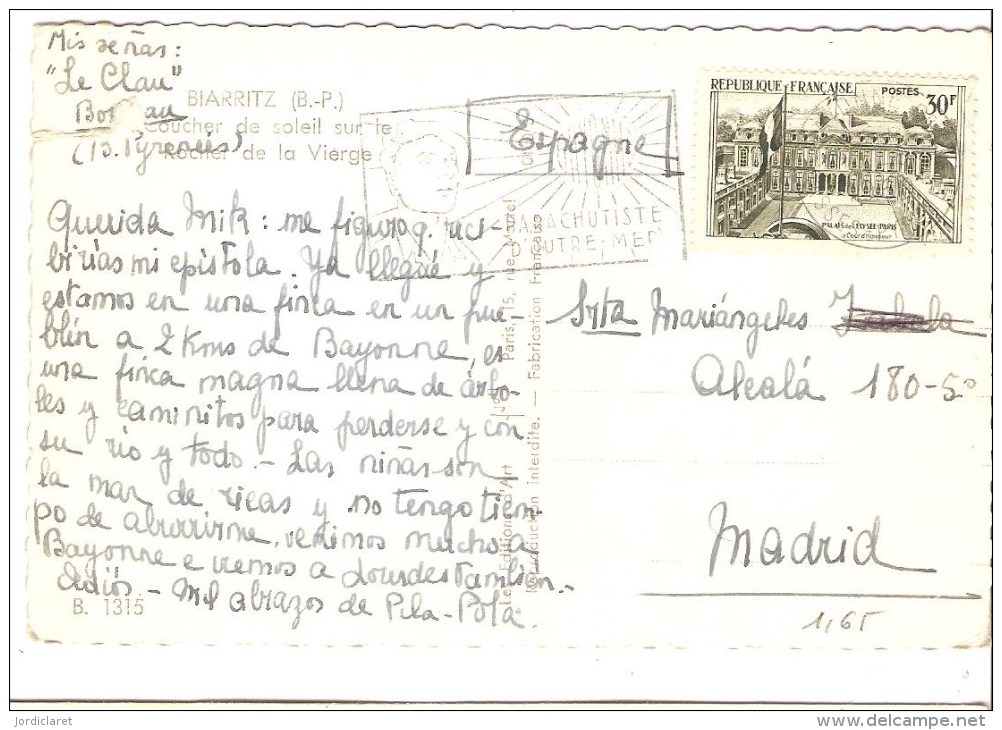 Mis señas:
"Le Clau"
BIARRITZ (B.-P.)
Coucher de soleil sur le
(B. Pyrenées)
Rocher de la Vierge
Espagne
RÉPUBLIQUE FRANÇAISE
POSTES
30F
PALAIS de L'ELYSÉE-PARIS
Cour d'Honneur
PARACHUTISTE
D'OUTRE-MER
Querida Mik: me figuro q. reci-
birías mi epistola. Ya llegué y
estamos en una finca en un pue-
blín a 2 Kms de Bayonne, es
una finca magna llena de árbo-
les y caminitos para perderse y con
su río y todo.- Las niñas son
la mar de ricas y no tengo tiem
po de aburrirme, venimos mucho a
Bayonne e iremos a Lourdes tambien.-
Adiós.- Mil abrazos de Pila-Pola.
B. 1315
Les Editions d'Art Paris, 15, rue
Reproduction interdite. — Fabrication Française
Srta Mariángeles
Alcalá 180-5º
Madrid
1,65
jordiclaret
www.delcampe.net